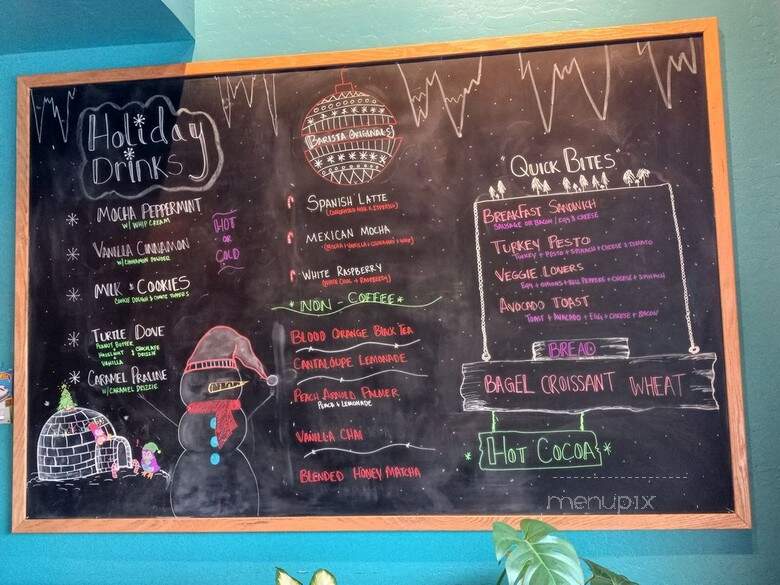 Holiday
Drinks
Mocha Peppermint
w/ Whip Cream
Vanilla Cinnamon
w/ Cinnamon Powder
Milk & Cookies
Cookie Dough & Cookie
Turtle Dove
Peanut Butter
Hazelnut & Chocolate
Vanilla Drizzle
Caramel Praline
w/ Caramel Drizzle
Hot
or
Cold
Barista Originals
Spanish Latte
(Condensed Milk & Espresso)
Mexican Mocha
(Mocha + Vanilla + Cinnamon +
White Raspberry
(White Choc + Raspberry)
* Non-Coffee *
Blood Orange Black Tea
Cantaloupe Lemonade
Peach Arnold Palmer
Peach & Lemonade
Vanilla Chai
Blended Honey Matcha
"Quick Bites"
Breakfast Sandwich
Sausage or Bacon / Egg & Cheese
Turkey Pesto
Turkey + Pesto + Spinach + Cheese & Tomato
Veggie Lovers
Egg + Onions + Bell Peppers + Cheese + Spinach
Avocado Toast
Toast + Avacado + Egg + Cheese + Bacon
Bread
Bagel Croissant Wheat
* Hot Cocoa *
menupix